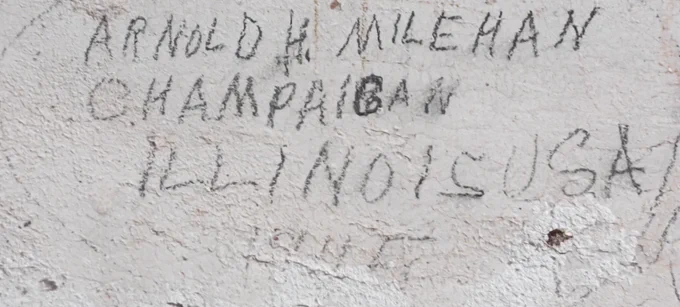 ARNOLD H. MILEHAN
CHAMPAIGAN
ILLINOIS USA